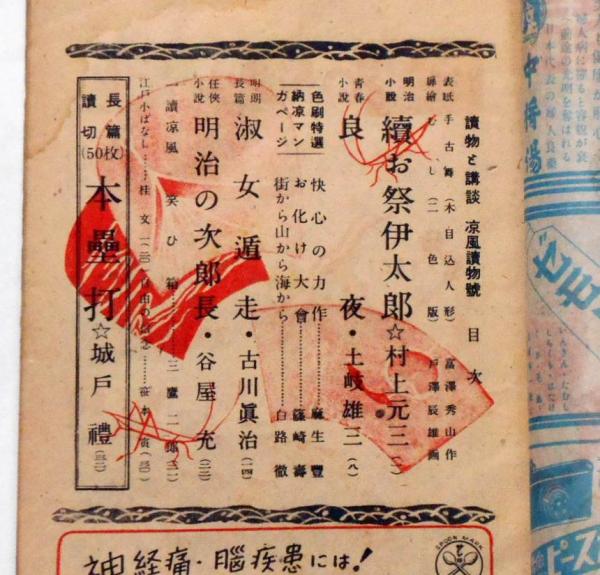 讀物と講談 凉風讀物號 目次
表紙 手古舞(木目込人形) 富澤秀山作
扉繪 むし(二色版) 戸澤辰雄画
明治小説 續お祭伊太郎☆村上元三
青春小説 良夜・土岐雄三(八)
色刷特選 納凉マンガページ
快心の力作……麻生豐
お化け大會……篠崎壽
街から山から海から……白路徹
明朗長篇 淑女遁走・古川眞治(一四)
任侠小説 明治の次郎長・谷屋充(二二)
一讀凉風 笑ひ箱……三鷹二郎
江戸小ばなし……桂文
長篇讀切(50枚) 本壘打☆城戸禮(三二)
神経痛・脳疾患には!
SPOON MARK
中将湯
ゼモ
ピース